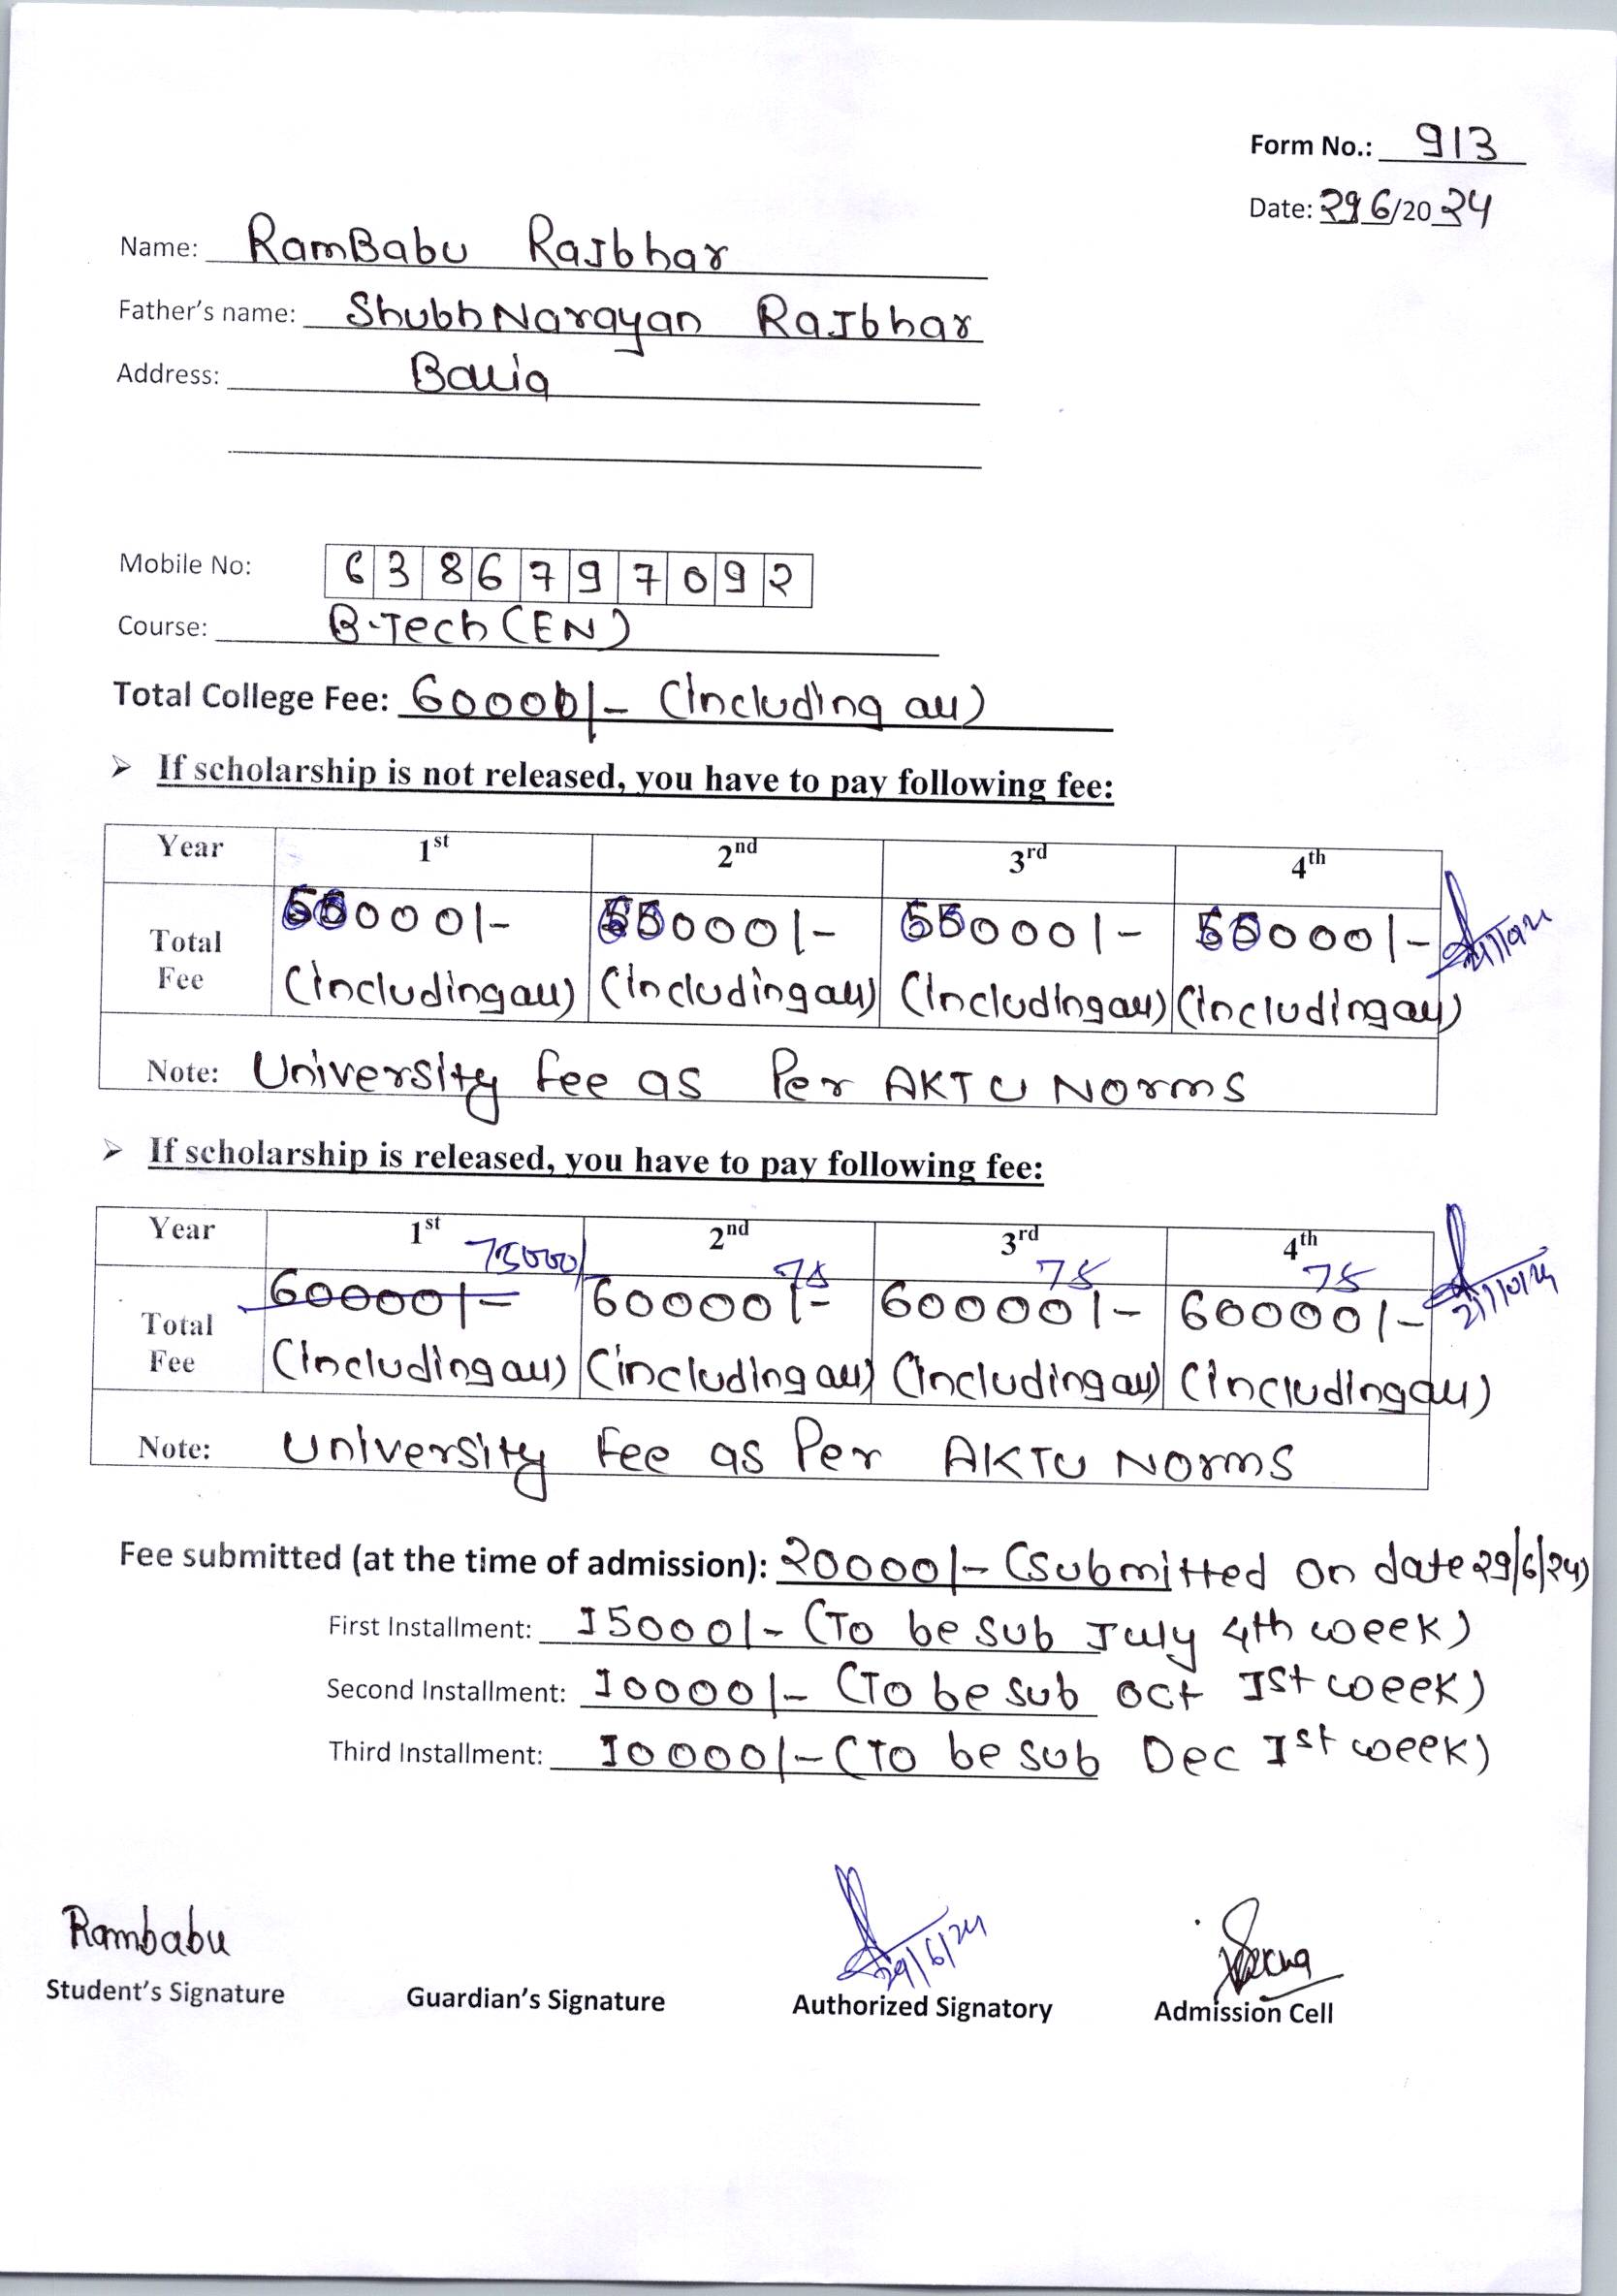 Form No.: 913
Date: 29 6/2024
Name: RamBabu Rajbhar
Father's name: ShubhNarayan Rajbhar
Address: Ballia
Mobile No: 6386797092
Course: B.Tech (EN)
Total College Fee: 60000/- (Including all)
➢ If scholarship is not released, you have to pay following fee:
Year 1st 2nd 3rd 4th
Total Fee 55000/- 55000/- 55000/- 55000/-
(Including all) (Including all) (Including all) (Including all)
Note: University fee as Per AKTU Norms
➢ If scholarship is released, you have to pay following fee:
Year 1st 2nd 3rd 4th
75000/ 75 75 75
Total Fee 60000/- 60000/- 60000/- 60000/-
21/10/24
(Including all) (including all) (Including all) (including all)
Note: University Fee as Per AKTU Norms
Fee submitted (at the time of admission): 20000/- (Submitted on date 29/6/24)
First Installment: 15000/- (To be sub July 4th week)
Second Installment: 10000/- (To be sub oct 1st week)
Third Installment: 10000/- (To be sub Dec 1st week)
Rambabu
29/6/24
Student's Signature Guardian's Signature Authorized Signatory Admission Cell